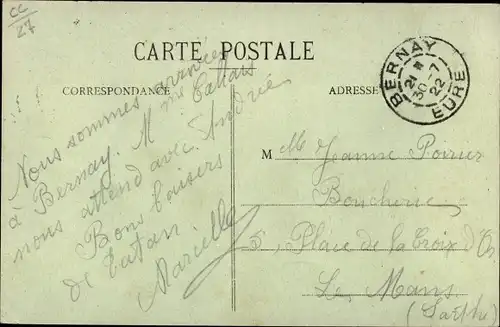 CC
27
CARTE POSTALE
CORRESPONDANCE
ADRESSE
BERNAY
21 H
30 - 7
22
EURE
Nous sommes arrivées
à Bernay. Mme
nous attend avec Andrée
Bons baisers
de tatan
Marcelle
M elle Jeanne Poirier
Boucherie
5, Place de la Croix d'Or
Le Mans
(Sarthe)